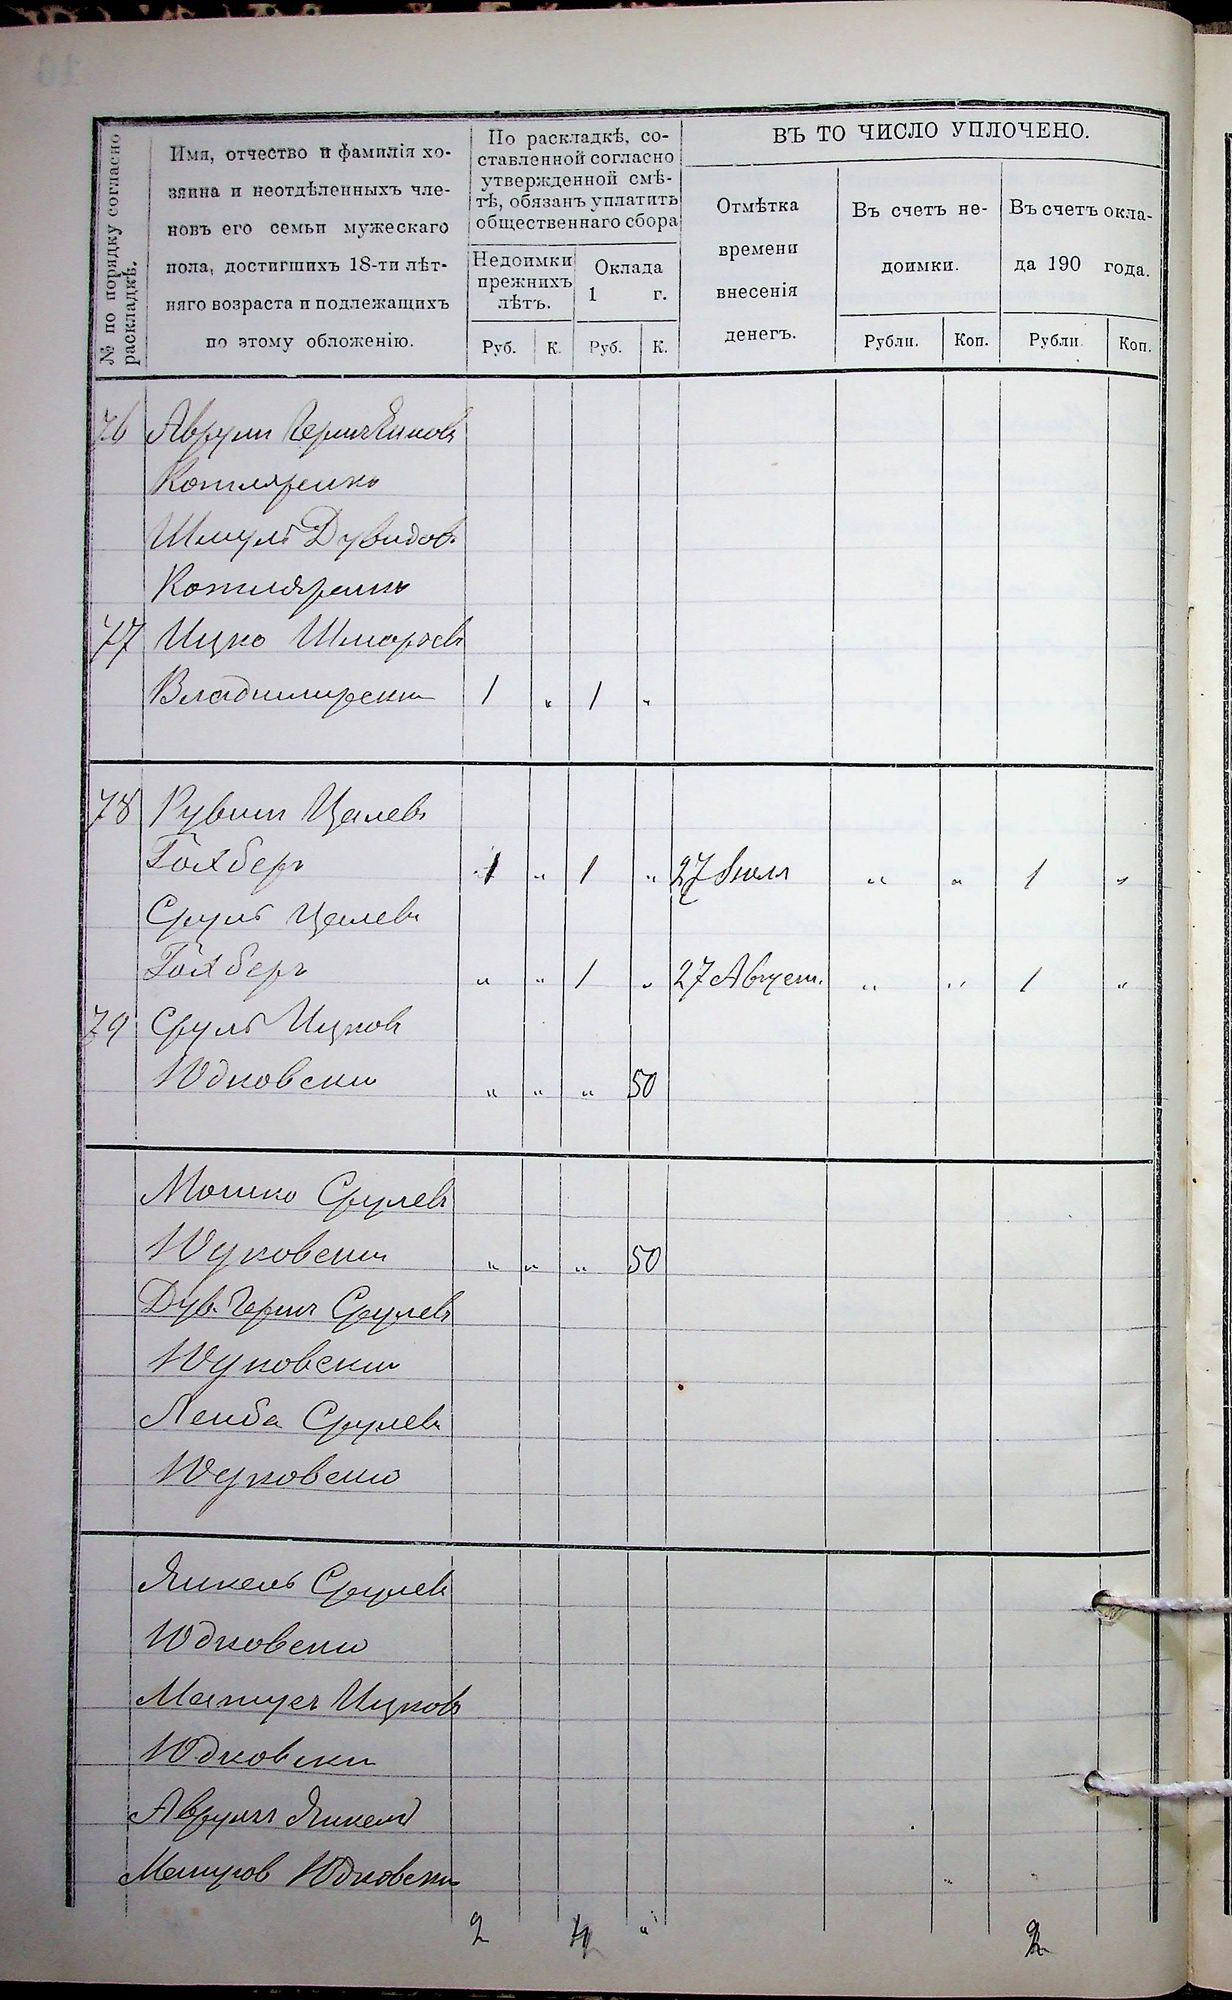 № по порядку согласно раскладкѣ.
Имя, отчество и фамилія хо-
зяина и неотдѣленныхъ чле-
новъ его семьи мужескаго
пола, достигшихъ 18-ти лѣт-
няго возраста и подлежащихъ
по этому обложенію.
По раскладкѣ, со-
ставленной согласно
утвержденной смѣ-
тѣ, обязанъ уплатить
общественнаго сбора
Недоимки
прежнихъ
лѣтъ.
Оклада
1 г.
Руб. К. Руб. К.
ВЪ ТО ЧИСЛО УПЛОЧЕНО.
Отмѣтка
времени
внесенія
денегъ.
Въ счетъ не-
доимки.
Въ счетъ окла-
да 190 года.
Рубли. Коп. Рубли. Коп.
76 Аврум Герш Янковъ
Котляренко
Шмуль Дувидов.
Котляренко
77 Ицко Шмаровъ
Владимирски 1 " 1 "
78 Рувин Цалевъ
Гохберг 1 " 1 " 27 Июля " " 1 "
Сруль Цалевъ
Гохберг " " 1 " 27 Август. " " 1 "
79 Сруль Ицковъ
Юдковски " " " 50
Мошко Срулевъ
Юдковски " " " 50
Дув. Герш Срулевъ
Юдковски
Лейба Срулевъ
Юдковски
Янкель Срулевъ
Юдковски
Ицковъ
Юдковски
Аврум Янкель
Юдковски
2 4 " 2